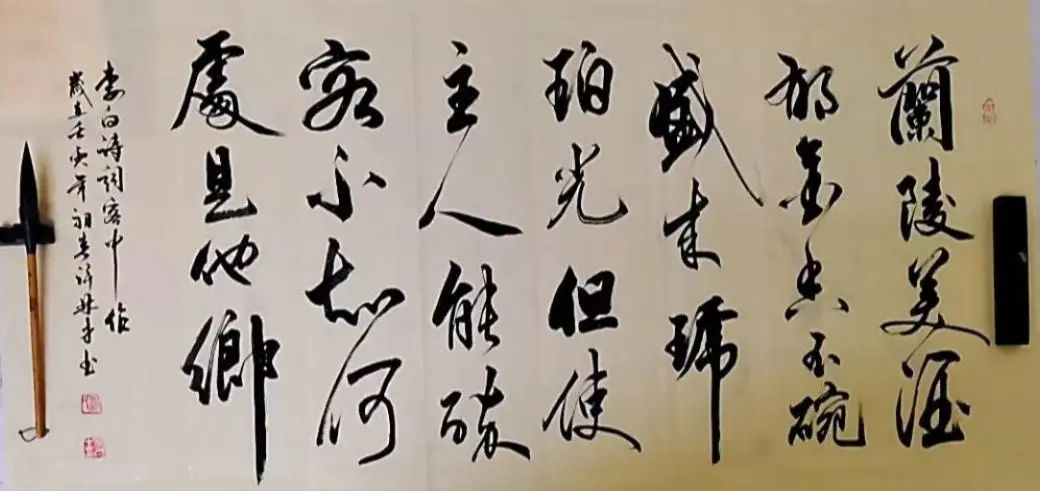 蘭陵美酒
郁金香玉碗
盛来琥
珀光但使
主人能醉
客不知何
處是他鄉
李白诗詞客中作
歲在壬寅年初春許书